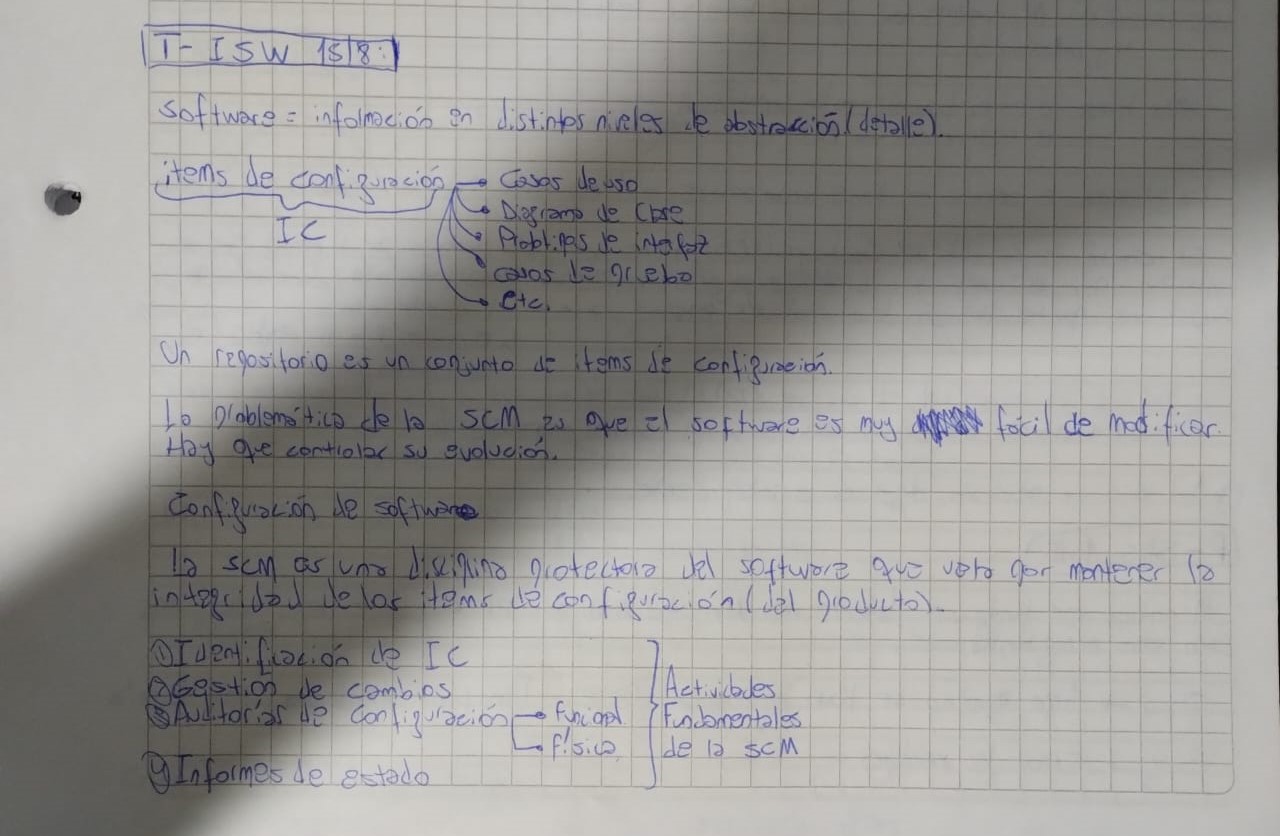 T- ISW 15/8:
Software = información en distintos niveles de abstracción (detalle).
items de configuración → Casos de uso
→ Diagrama de Clase
→ Prototipos de interfaz
IC
→ casos de prueba
→ etc.
Un repositorio es un conjunto de items de configuración.
La problemática de la SCM es que el software es muy fácil de modificar.
Hay que controlar su evolución.
Configuración de software
La SCM es una disciplina protectora del software que vela por mantener la
integridad de los items de configuración (del producto).
① Identificación de IC
② Gestión de cambios
③ Auditorías de configuración → funcional
→ física
④ Informes de estado
Actividades
Fundamentales
de la SCM